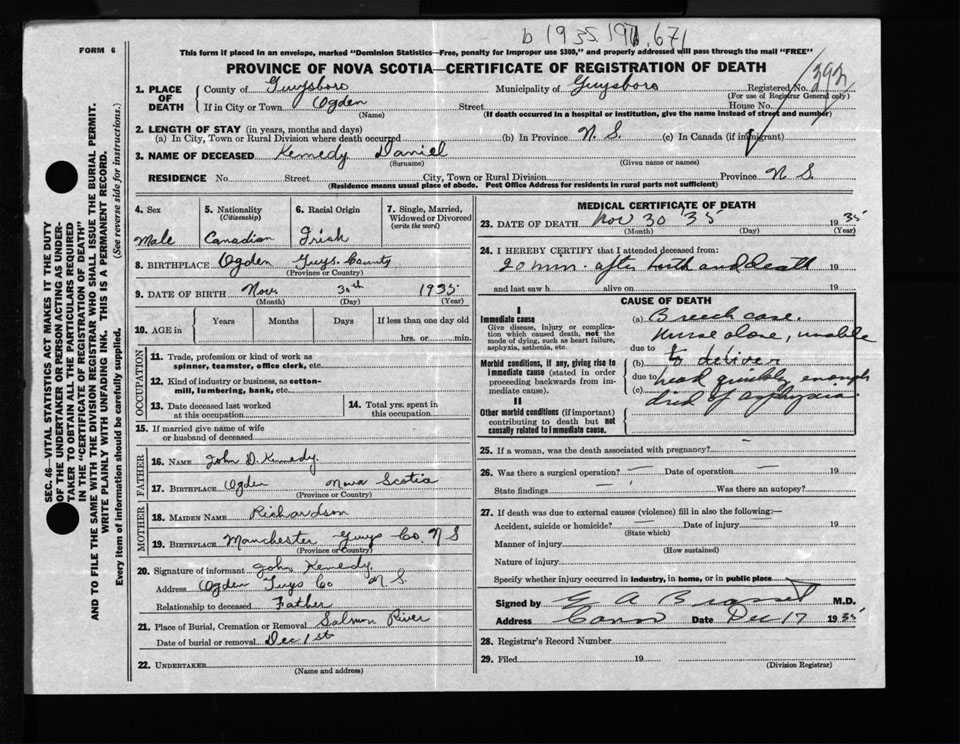 b 1935 191 671
FORM 6
This form if placed in an envelope, marked "Dominion Statistics—Free, penalty for improper use $300," and properly addressed will pass through the mail "FREE"
PROVINCE OF NOVA SCOTIA—CERTIFICATE OF REGISTRATION OF DEATH
392
1. PLACE OF DEATH { County of Guysboro Municipality of Guysboro Registered No.
(For use of Registrar General only)
If in City or Town Ogden Street House No.
(Name) (If death occurred in a hospital or institution, give the name instead of street and number)
2. LENGTH OF STAY (in years, months and days)
(a) In City, Town or Rural Division where death occurred (b) In Province N. S. (c) In Canada (if immigrant)
3. NAME OF DECEASED Kennedy Daniel
(Surname) (Given name or names)
RESIDENCE No. Street City, Town or Rural Division Province N S.
(Residence means usual place of abode. Post Office Address for residents in rural parts not sufficient)
4. Sex
Male
5. Nationality
(Citizenship)
Canadian
6. Racial Origin
Irish
7. Single, Married, Widowed or Divorced
(write the word)
8. BIRTHPLACE Ogden Guys. County
(Province or Country)
9. DATE OF BIRTH Nov. 30th 1935
(Month) (Day) (Year)
10. AGE in { Years Months Days If less than one day old
hrs. or min.
OCCUPATION
11. Trade, profession or kind of work as
spinner, teamster, office clerk, etc.
12. Kind of industry or business, as cotton-
mill, lumbering, bank, etc.
13. Date deceased last worked
at this occupation
14. Total yrs. spent in
this occupation
15. If married give name of wife
or husband of deceased
FATHER
16. NAME John D. Kennedy.
17. BIRTHPLACE Ogden Nova Scotia
(Province or Country)
MOTHER
18. MAIDEN NAME Richardson
19. BIRTHPLACE Manchester Guys Co. N S
(Province or Country)
20. Signature of informant John Kennedy.
Address Ogden Guys Co N. S.
Relationship to deceased Father
21. Place of Burial, Cremation or Removal Salmon River
Date of burial or removal Dec 1st
22. UNDERTAKER
(Name and address)
MEDICAL CERTIFICATE OF DEATH
23. DATE OF DEATH Nov 30 '35 1935
(Month) (Day) (Year)
24. I HEREBY CERTIFY that I attended deceased from:
20 min. after birth and death 19
and last saw h alive on 19
CAUSE OF DEATH
I
Immediate cause
Give disease, injury or complica-
tion which caused death, not the
mode of dying, such as heart failure,
asphyxia, asthenia, etc.
Morbid conditions, if any, giving rise to
immediate cause (stated in order
proceeding backwards from im-
mediate cause).
II
Other morbid conditions (if important)
contributing to death but not
causally related to immediate cause.
(a) Breech case.
Nurse alone, unable
due to
(b) to deliver
due to head quickly enough
(c) died of asphyxia.
25. If a woman, was the death associated with pregnancy?
26. Was there a surgical operation? — Date of operation — 19
State findings — Was there an autopsy?
27. If death was due to external causes (violence) fill in also the following:—
Accident, suicide or homicide? — Date of injury — 19
(State which)
Manner of injury
(How sustained)
Nature of injury
Specify whether injury occurred in industry, in home, or in public place
Signed by G A Brasset M.D.
Address Canso Date Dec 17 1935
28. Registrar's Record Number
29. Filed 19
(Division Registrar)
SEC. 46—VITAL STATISTICS ACT MAKES IT THE DUTY
OF THE UNDERTAKER OR PERSON ACTING AS UNDER-
TAKER TO OBTAIN ALL THE PARTICULARS REQUIRED
IN THE "CERTIFICATE OF REGISTRATION OF DEATH"
AND TO FILE THE SAME WITH THE DIVISION REGISTRAR WHO SHALL ISSUE THE BURIAL PERMIT.
WRITE PLAINLY WITH UNFADING INK. THIS IS A PERMANENT RECORD.
Every item of information should be carefully supplied. (See reverse side for instructions.)